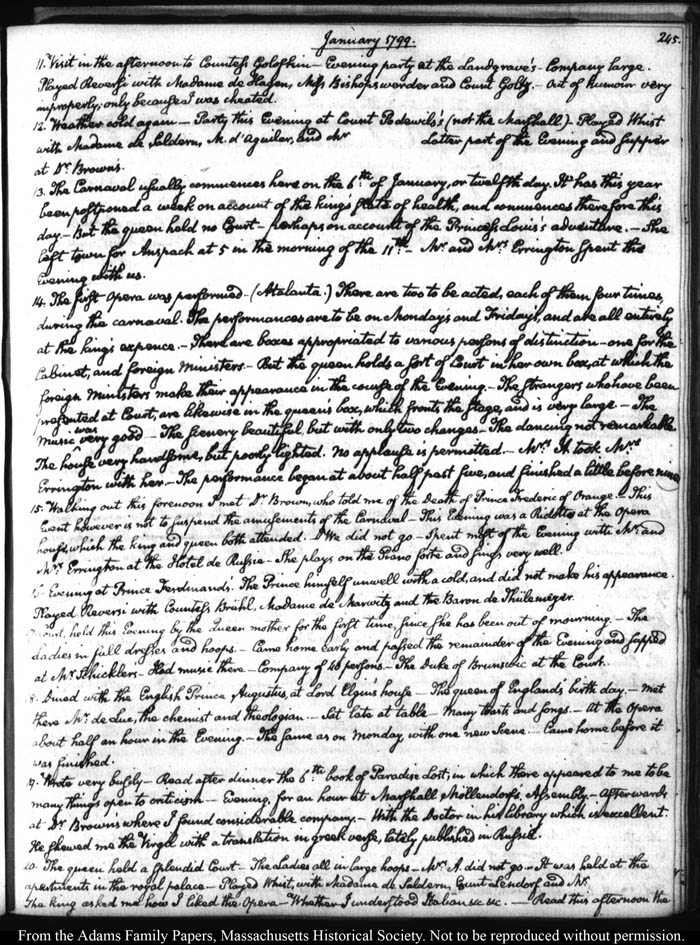 January 1799.
245.
11. Visit in the afternoon to Countess Golofkin — Evening party at the Landgrave's — Company large.
Played Reversi with Madame de Hagen, Miss Bishopswerder and Count Goltz. — Out of humour very
improperly, only because I was cheated.
12. Weather cold again — Party this Evening at Count Podewils's (not the Marshall) — Played Whist
with Madame de Soldern, M. d'Aguilar, and Mr Latter part of the Evening and supper
at Dr. Brown's.
13. The Carnaval usually commences here on the 6th. of January, or twelfth day. It has this year
been postponed a week on account of the king's state of health, and commences therefore this
day. — But the queen held no Court — perhaps on account of the Princess Louis's adventure. — She
left town for Anspach at 5 in the morning of the 11th. — Mr. and Mrs. Errington spent the
Evening with us.
14. The first Opera was performed — (Atalanta.) There are two to be acted, each of them four times,
during the carnaval. The performances are to be on Mondays and Fridays, and are all entirely
at the king's expence. — There are boxes appropriated to various persons of distinction — one for the
Cabinet, and foreign Ministers — But the queen holds a sort of Court in her own box, at which the
foreign Ministers make their appearance in the course of the Evening. — The strangers who have been
presented at Court, are likewise in the queen's box, which fronts the stage, and is very large — The
music was very good — The scenery beautiful, but with only two changes — The dancing not remarkable
The house very handsome, but poorly lighted. No applause is permitted. — Mrs. A. took Mrs.
Errington with her — The performance began at about half past five, and finished a little before nine
15. Walking out this forenoon I met Dr. Brown, who told me of the Death of Prince Frederic of Orange. — This
Event however is not to suspend the amusements of the Carnaval — This Evening was a Ridotto at the Opera
house, which the king and queen both attended. We did not go — Spent most of the Evening with Mr. and
Mrs. Errington at the Hotel de Russie — She plays on the Piano forte and sings very well.
16. Evening at Prince Ferdinand's. The Prince himself unwell with a cold, and did not make his appearance.
Played Reversi with Countess Brühl, Madame de Marwitz and the Baron de Thülemeyer.
17. Court, held this Evening by the Queen mother for the first time, since she has been out of mourning. — The
ladies in full dresses and hoops. — Came home early and passed the remainder of the Evening and supped
at Mr. Schickler's — Had music there — Company of 48 persons — The Duke of Brunswic at the Court.
18. Dined with the English Prince Augustus, at Lord Elgin's house — The queen of England's birth day. — Met
there Mr. de Luc, the chemist and theologian. — Sat late at table — Many toasts and songs. — At the Opera
about half an hour in the Evening — The same as on Monday, with one new scene — Came home before it
was finished.
19. Wrote very busily — Read after dinner the 6th. book of Paradise lost, in which there appeared to me to be
many things open to criticism — Evening, for an hour at Marshall Möllendorf's Assembly — Afterwards
at Dr Brown's where I found considerable company — With the Doctor in his library which is excellent.
He shewed me the Virgil with a translation in greek verse, lately published in Russia.
20. The queen held a splendid Court — The Ladies all in large hoops — Mrs. A. did not go — It was held at the
apartments in the royal palace — Played Whist, with Madame de Soldern, Count Lendorf and Mr.
The king asked me how I liked the Opera — Whether I understood Italian &c &c. — Read this afternoon the
From the Adams Family Papers, Massachusetts Historical Society. Not to be reproduced without permission.